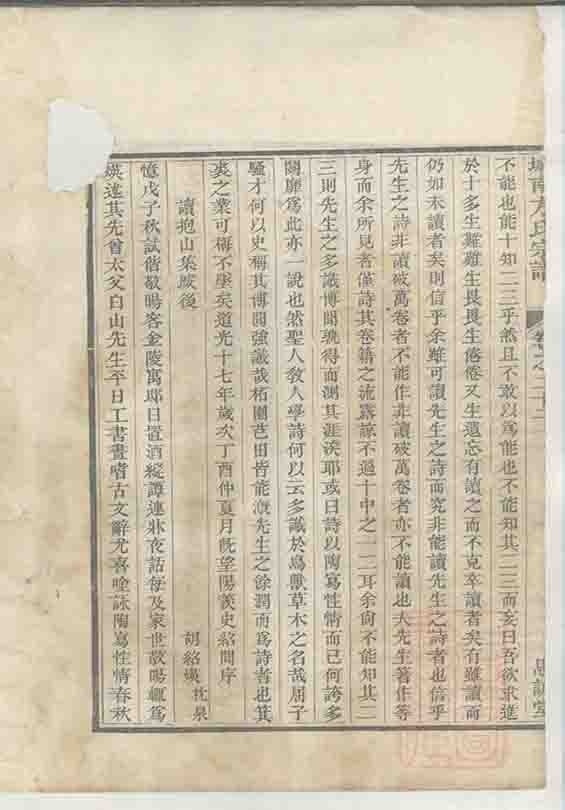 城南方氏宗譜 卷之二十二 思訓堂
不能也能十知二三乎然且不敢以爲能也不能知其二三而妄曰吾欲求進
於十多生難難生畏畏生倦倦又生遺忘有讀之而不克卒讀者矣有雖讀而
仍如未讀者矣則信乎余雖可讀先生之詩而究非能讀先生之詩者也信乎
先生之詩非讀破萬卷者不能作非讀破萬卷者亦不能讀也夫先生著作等
身而余所見者僅詩其卷籍之流露諒不過十中之一二耳余尙不能知其二
三則先生之多識博聞孰得而測其涯涘耶或曰詩以陶寫性情而已何誇多
鬬靡爲此亦一說也然聖人敎人學詩何以云多識於鳥獸草木之名哉屈子
騷才何以史稱其博聞強識哉柘園芭田皆能漱先生之餘潤而爲詩者也箕
裘之業可稱不墜矣道光十七年歲次丁酉仲夏月旣望陽羨史紹聞序
讀抱山集敬後
胡紹瑛 枕泉
憶戊子秋試偕敬暘客金陵寓邸日置酒縱譚連牀夜話每及家世敬暘輒爲
瑛述其先曾太父白山先生平日工書晝嗜古文辭尤喜唫詠陶寫性情春秋